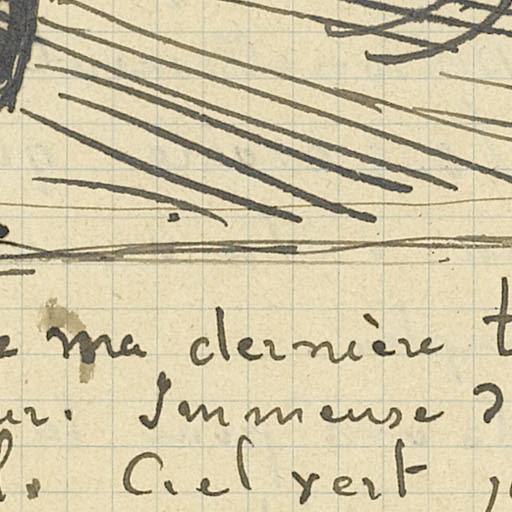 e ma dernière t
ur. Immense d
l. Ciel vert